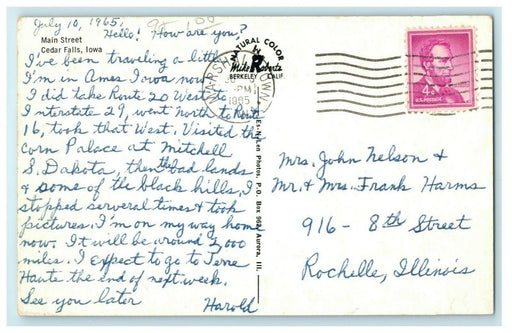 July 10, 1965,
Hello! How are you?
Main Street
Cedar Falls, Iowa
I've been traveling a little
I'm in Ames Iowa now
I did take Route 20 West to
Interstate 29, went North to Route
16, took that West. Visited the
Corn Palace at Mitchell
S. Dakota, then the bad lands
& some of the black hills. I
stopped serveral times & took
pictures. I'm on my way home
now. It will be around 2,000
miles. I expect to go to Terre
Haute the end of next week.
See you later
Harold
NATURAL COLOR
by
Mike Roberts
BERKELEY CALIF.
PM
1965
Photos, P.O. Box 962 Aurora, Ill.
4¢
U.S. POSTAGE
Mrs. John Nelson &
Mr. & Mrs. Frank Harms
916 - 8th Street
Rochelle, Illinois